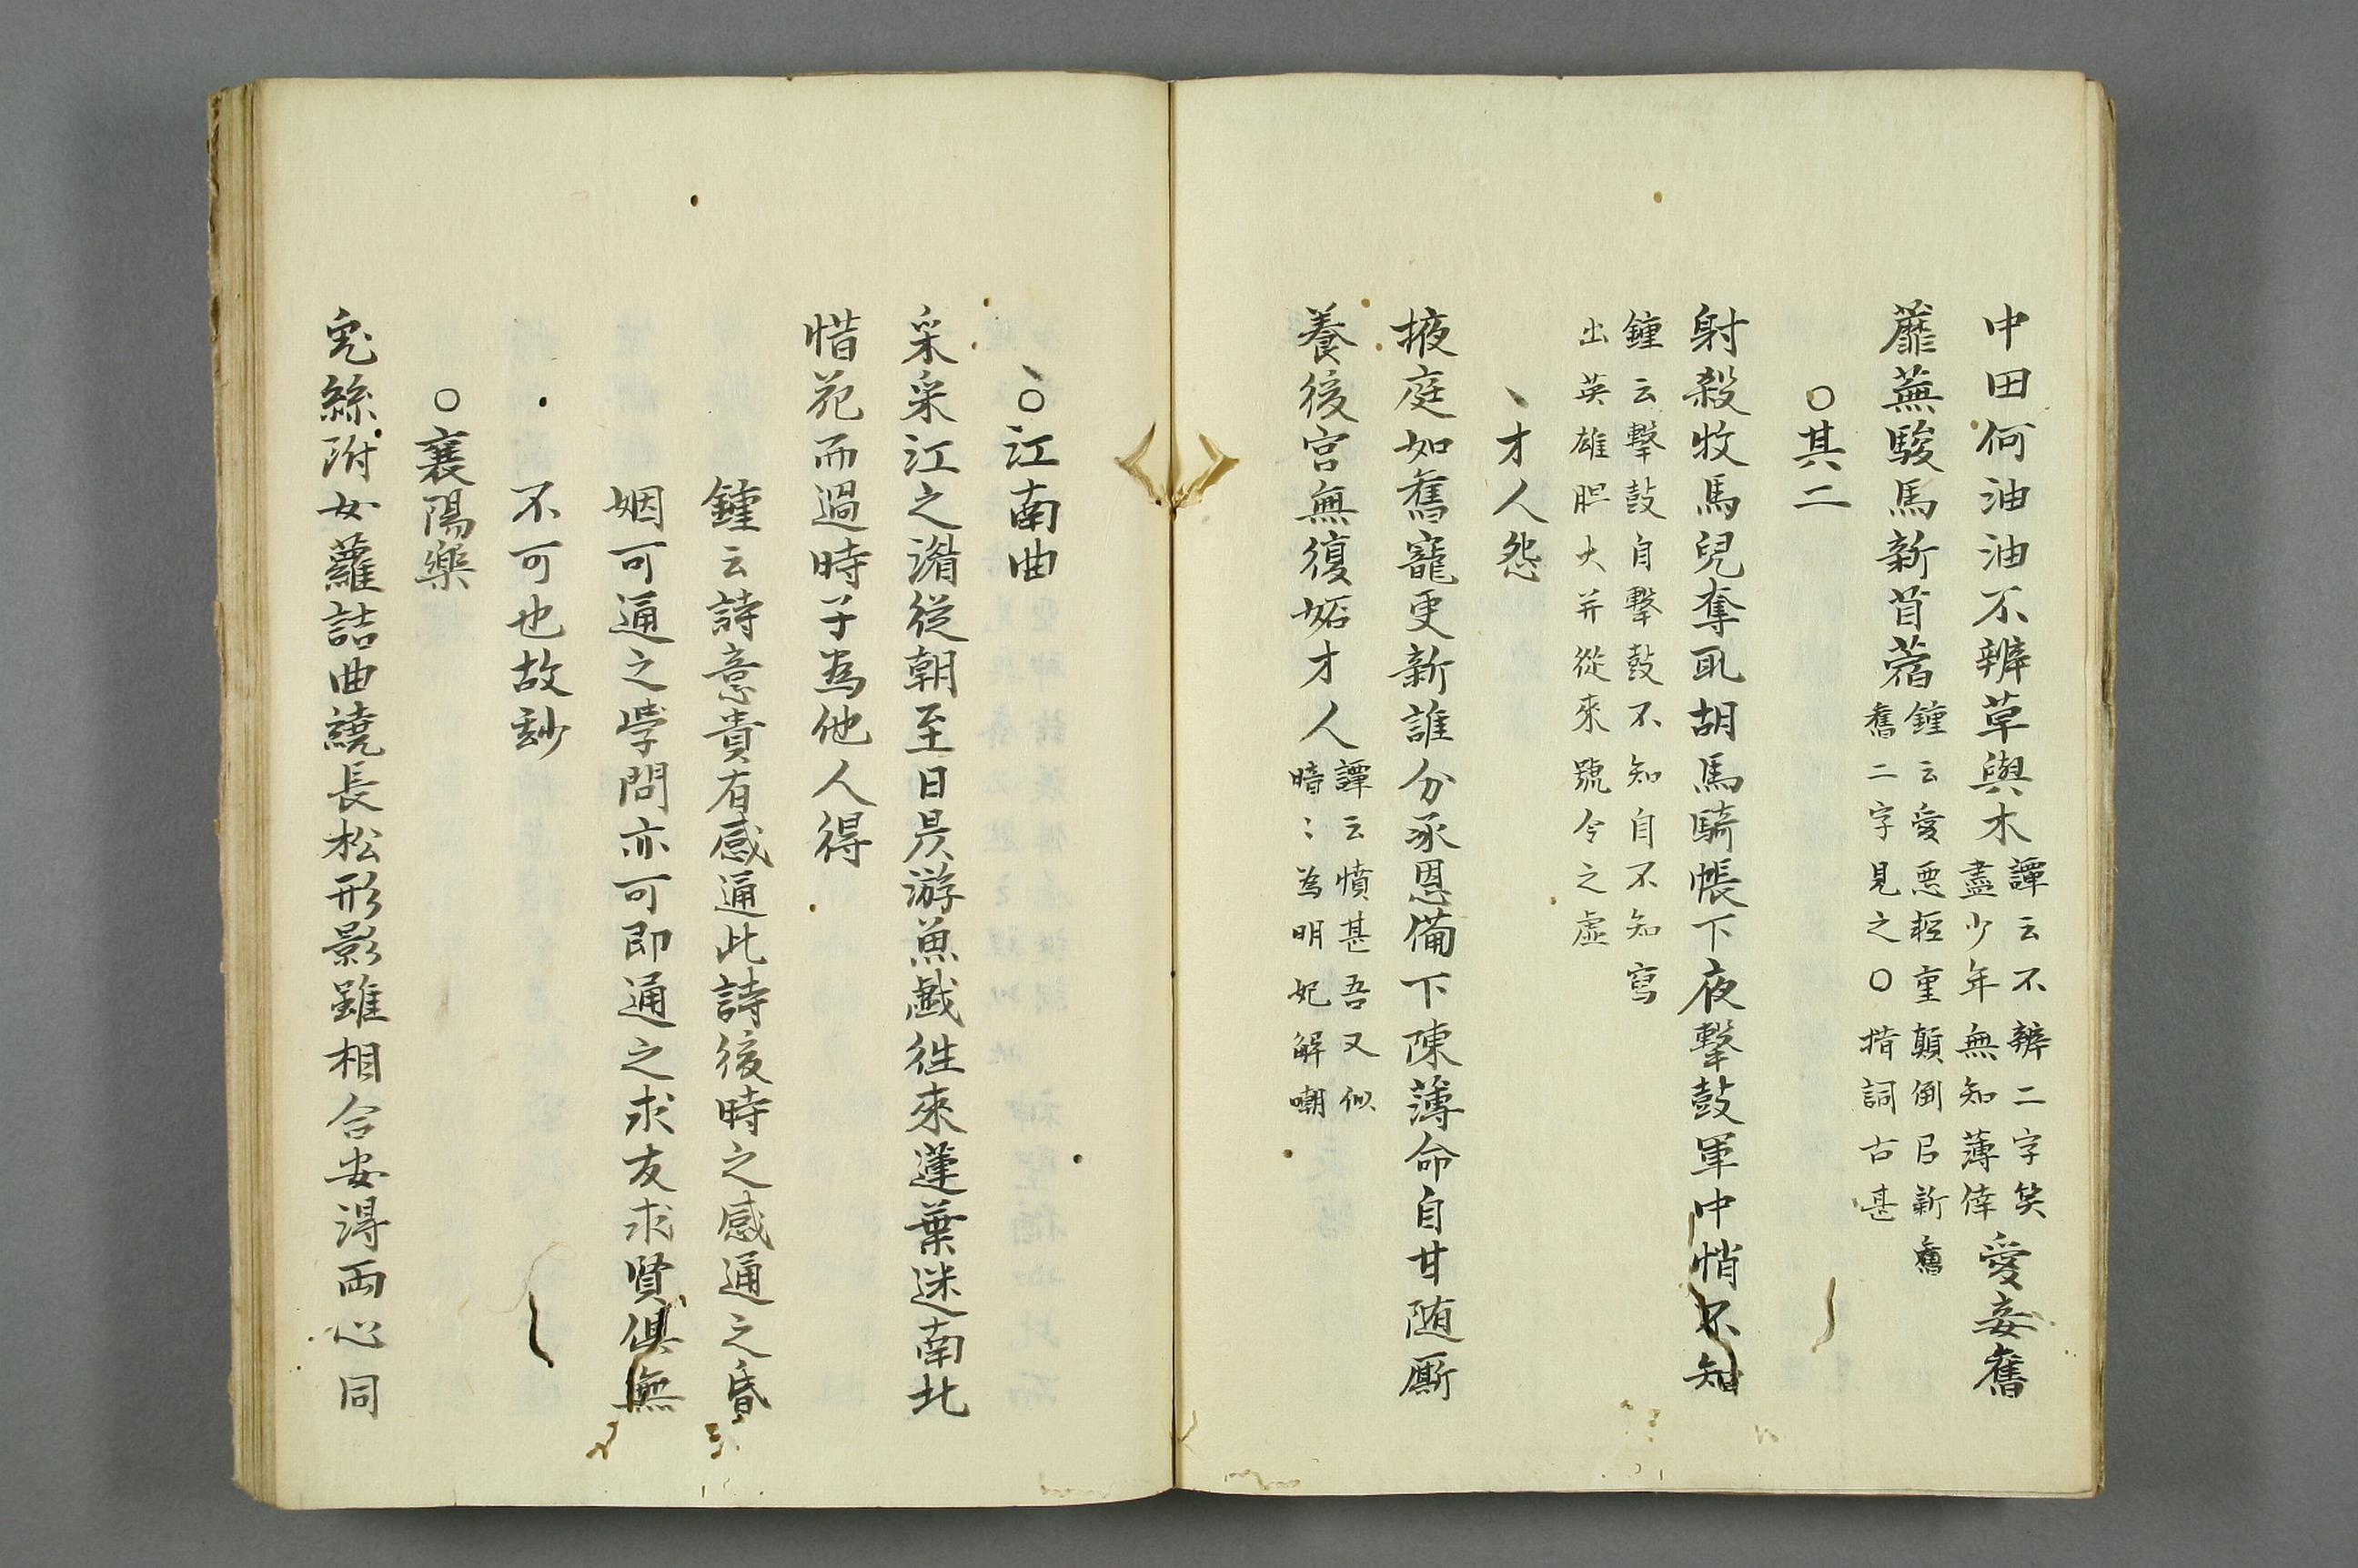 中田何油油不辨草與木譚云不辨二字笑盡少年無知薄倖愛妾舊
蘼蕪駿馬新苜蓿鍾云愛悪輕重顛倒㠯新舊舊二字見之〇措詞古甚
〇其二
射殺牧馬兒奪取胡馬騎帳下夜擊鼓軍中悄不知
鍾云擊鼓自擊鼓不知自不知寫
出英雄胆大并從來號令之虛
丶才人怨
掖庭如舊寵更新誰分承恩備下陳薄命自甘随厮
養後宮無復妬才人譚云憤甚吾又似時〻為明妃解嘲
丶〇江南曲
采采江之潸從朝至日昃游魚戲徃來蓮葉迷南北
惜花而過時子為他人得
鍾云詩意貴有感通此詩後時之感通之昏
姻可通之學問亦可即通之求友求賢俱無
不可也故玅
〇襄陽樂
兎絲附女蘿詰曲繞長松形影雖相合安得両心同